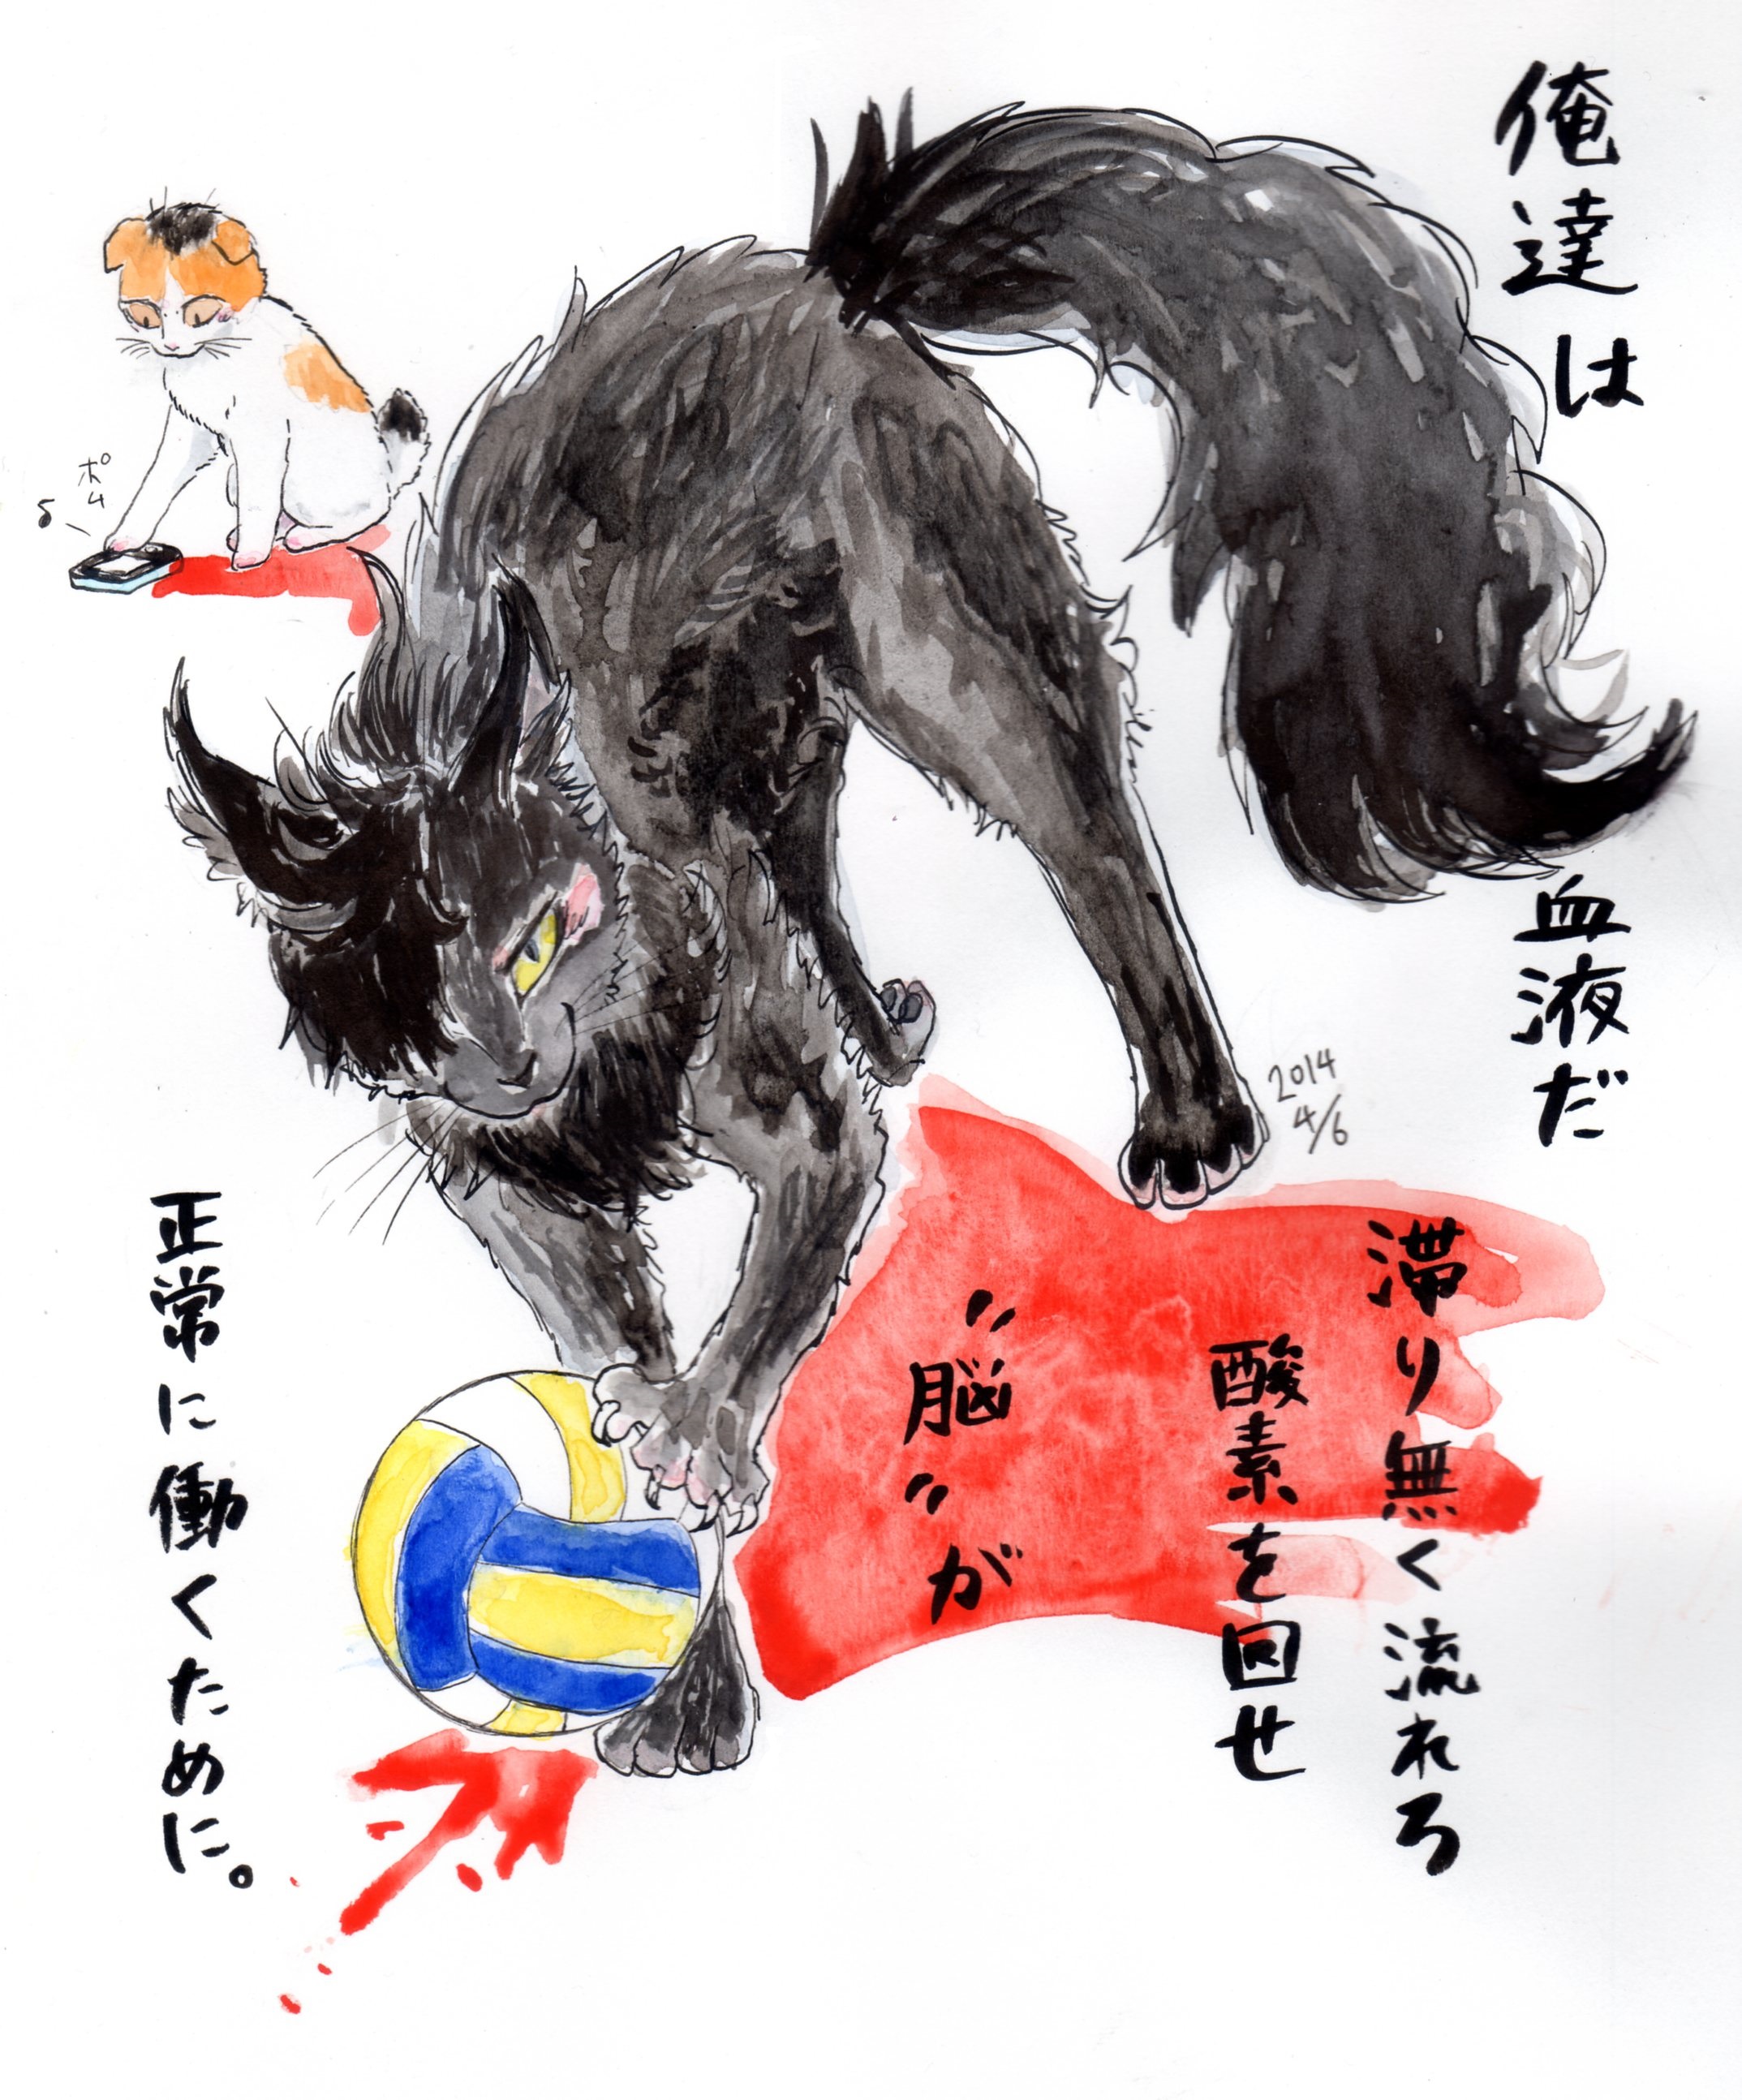 俺達は
血液だ
滞り無く流れろ
酸素を回せ
〝脳〟が
正常に働くために。
ポム
2014
4/6